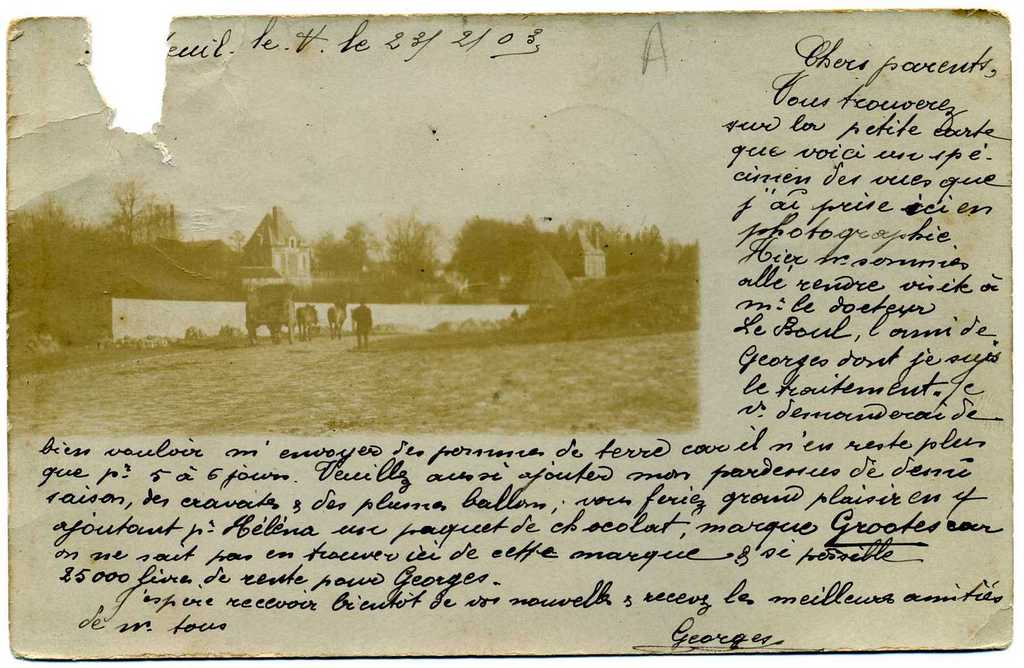 euil. le. V. le 23/2/03.
A
Chers parents,
Vous trouverez
sur la petite carte
que voici un spé-
cimen des vues que
j'ai prise ici en
photographie
Hier ns. sommes
allé rendre visite à
mr. le docteur
Le Boul, l'ami de
Georges dont je suis
le traitement. Je
vs. demanderai de
bien vouloir m'envoyer des pommes de terre car il n'en reste plus
que pr. 5 à 6 jours. Veuillez aussi ajouter mon pardessus de demi
saison, des cravates & des plumes ballon; vous feriez grand plaisir en y
ajoutant pr. Héléna un paquet de chocolat, marque Grootes car
on ne sait pas en trouver ici de cette marque & si possible
25000 livres de rente pour Georges.
J'espère recevoir bientôt de vos nouvelles & recevez les meilleures amitiés
de ns. tous
Georges